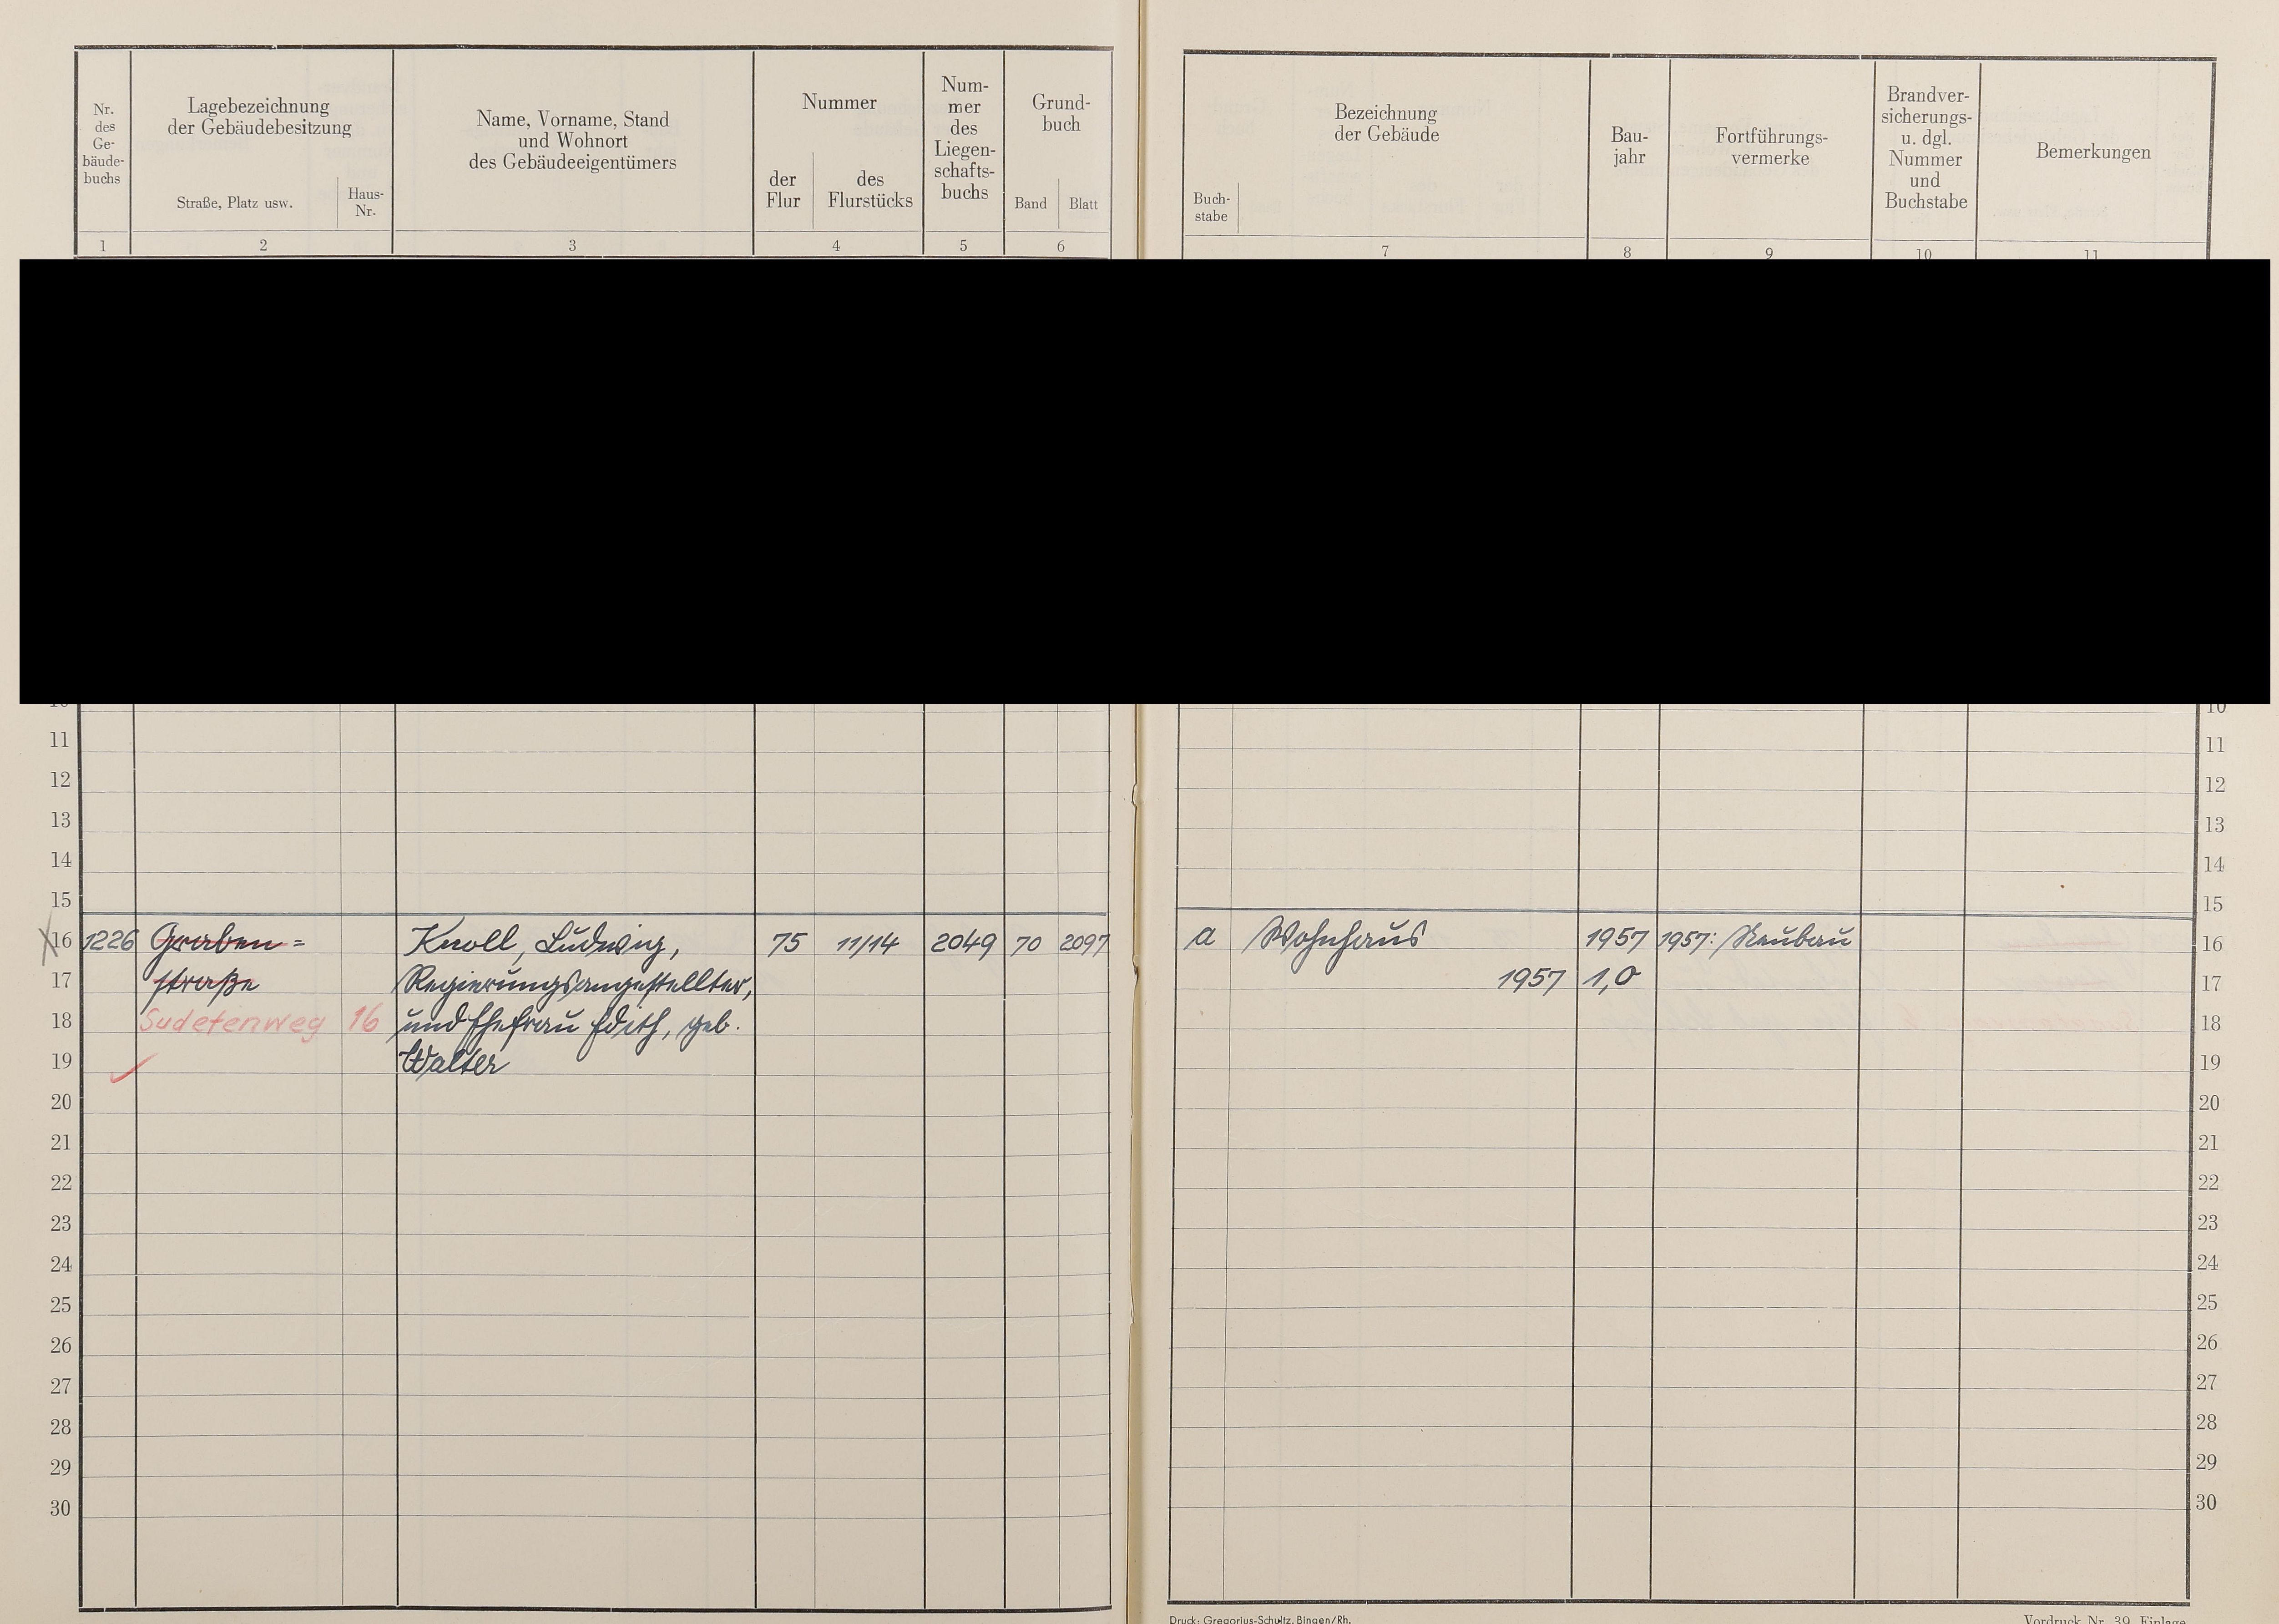 Nr.
des
Ge-
bäude-
buchs
Lagebezeichnung
der Gebäudebesitzung
Straße, Platz usw.
Haus-
Nr.
Name, Vorname, Stand
und Wohnort
des Gebäudeeigentümers
Nummer
der
Flur
des
Flurstücks
Num-
mer
des
Liegen-
schafts-
buchs
Grund-
buch
Band
Blatt
1 2 3 4 5 6
Buch-
stabe
Bezeichnung
der Gebäude
Bau-
jahr
Fortführungs-
vermerke
Brandver-
sicherungs-
u. dgl.
Nummer
und
Buchstabe
Bemerkungen
7 8 9 10 11
10 10
11 11
12 12
13 13
14 14
15 15
16 1226 Graben= Knoll, Ludwig, 75 11/14 2049 70 2097 a Wohnhaus 1957 1957: Neubau 16
17 straße Regierungsangestellter, 1957 1,0 17
18 Sudetenweg 16 und Ehefrau Edith, geb. 18
19 Walter 19
20 20
21 21
22 22
23 23
24 24
25 25
26 26
27 27
28 28
29 29
30 30
Druck: Gregorius-Schultz, Bingen/Rh.
Vordruck Nr. 39 Einlage